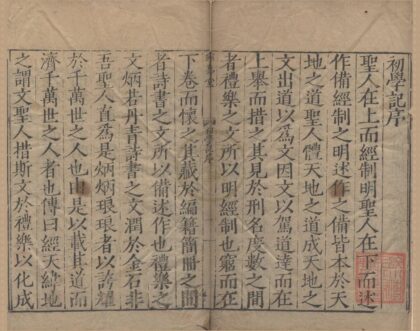 初學記序
聖人在上而經制明聖人在下而述
作備經制之明述作之備皆本於天
地之道聖人體天地之道成天地之
文出道以為文因文以駕道達而在
上舉而措之其見於刑名度數之間
者禮樂之文所以明經制也窮而在
下卷而懷之其藏於編籍簡冊之間
者詩書之文所以備述作也禮樂之
文炳若丹青詩書之文潤於金石非
吾聖人直為是炳炳琅琅者以誇耀
於千萬世之人也由是以載其道而
濟千萬世之人者也傳曰經天緯地
之謂文聖人措斯文於禮樂以化成